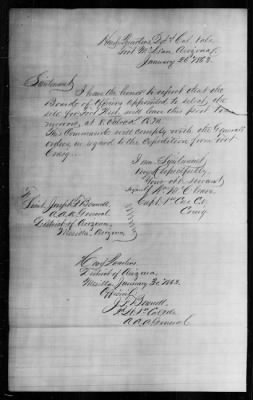 Head Quarters Det Cal. Vols.
Fort McLean Arizona
January 26th 1863.
Lieutenant
I have the honor to report that the
Board of Officers appointed to select the
site for Fort West, will leave this post to-
morrow, at 8 O'clock A.M.
The Commander will comply with the General
orders in regard to the Expedition from Fort
Craig.
I am Lieutenant
Very Respectfully
Your obt. servant
Signed
Capt 1st Cav. C.V.
Comg
To
Lieut. Joseph F Bennett
A.A.A. General
District of Arizona
Mesilla, Arizona
Head Quarters
District of Arizona
Mesilla January 30 1863.
Official
J F Bennett
A.A.A. General